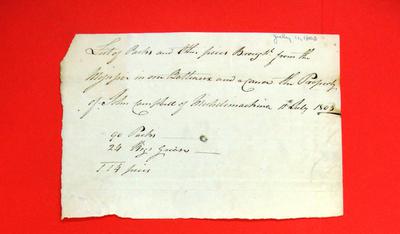 July 11, 1803
List of Packs and Other pieces Brought from the
in one Batteaux and a Canoe the Property
of John Campbell of Michilimackina 11th July 1803
90 Packs
24 Kegs Grease
114 pieces